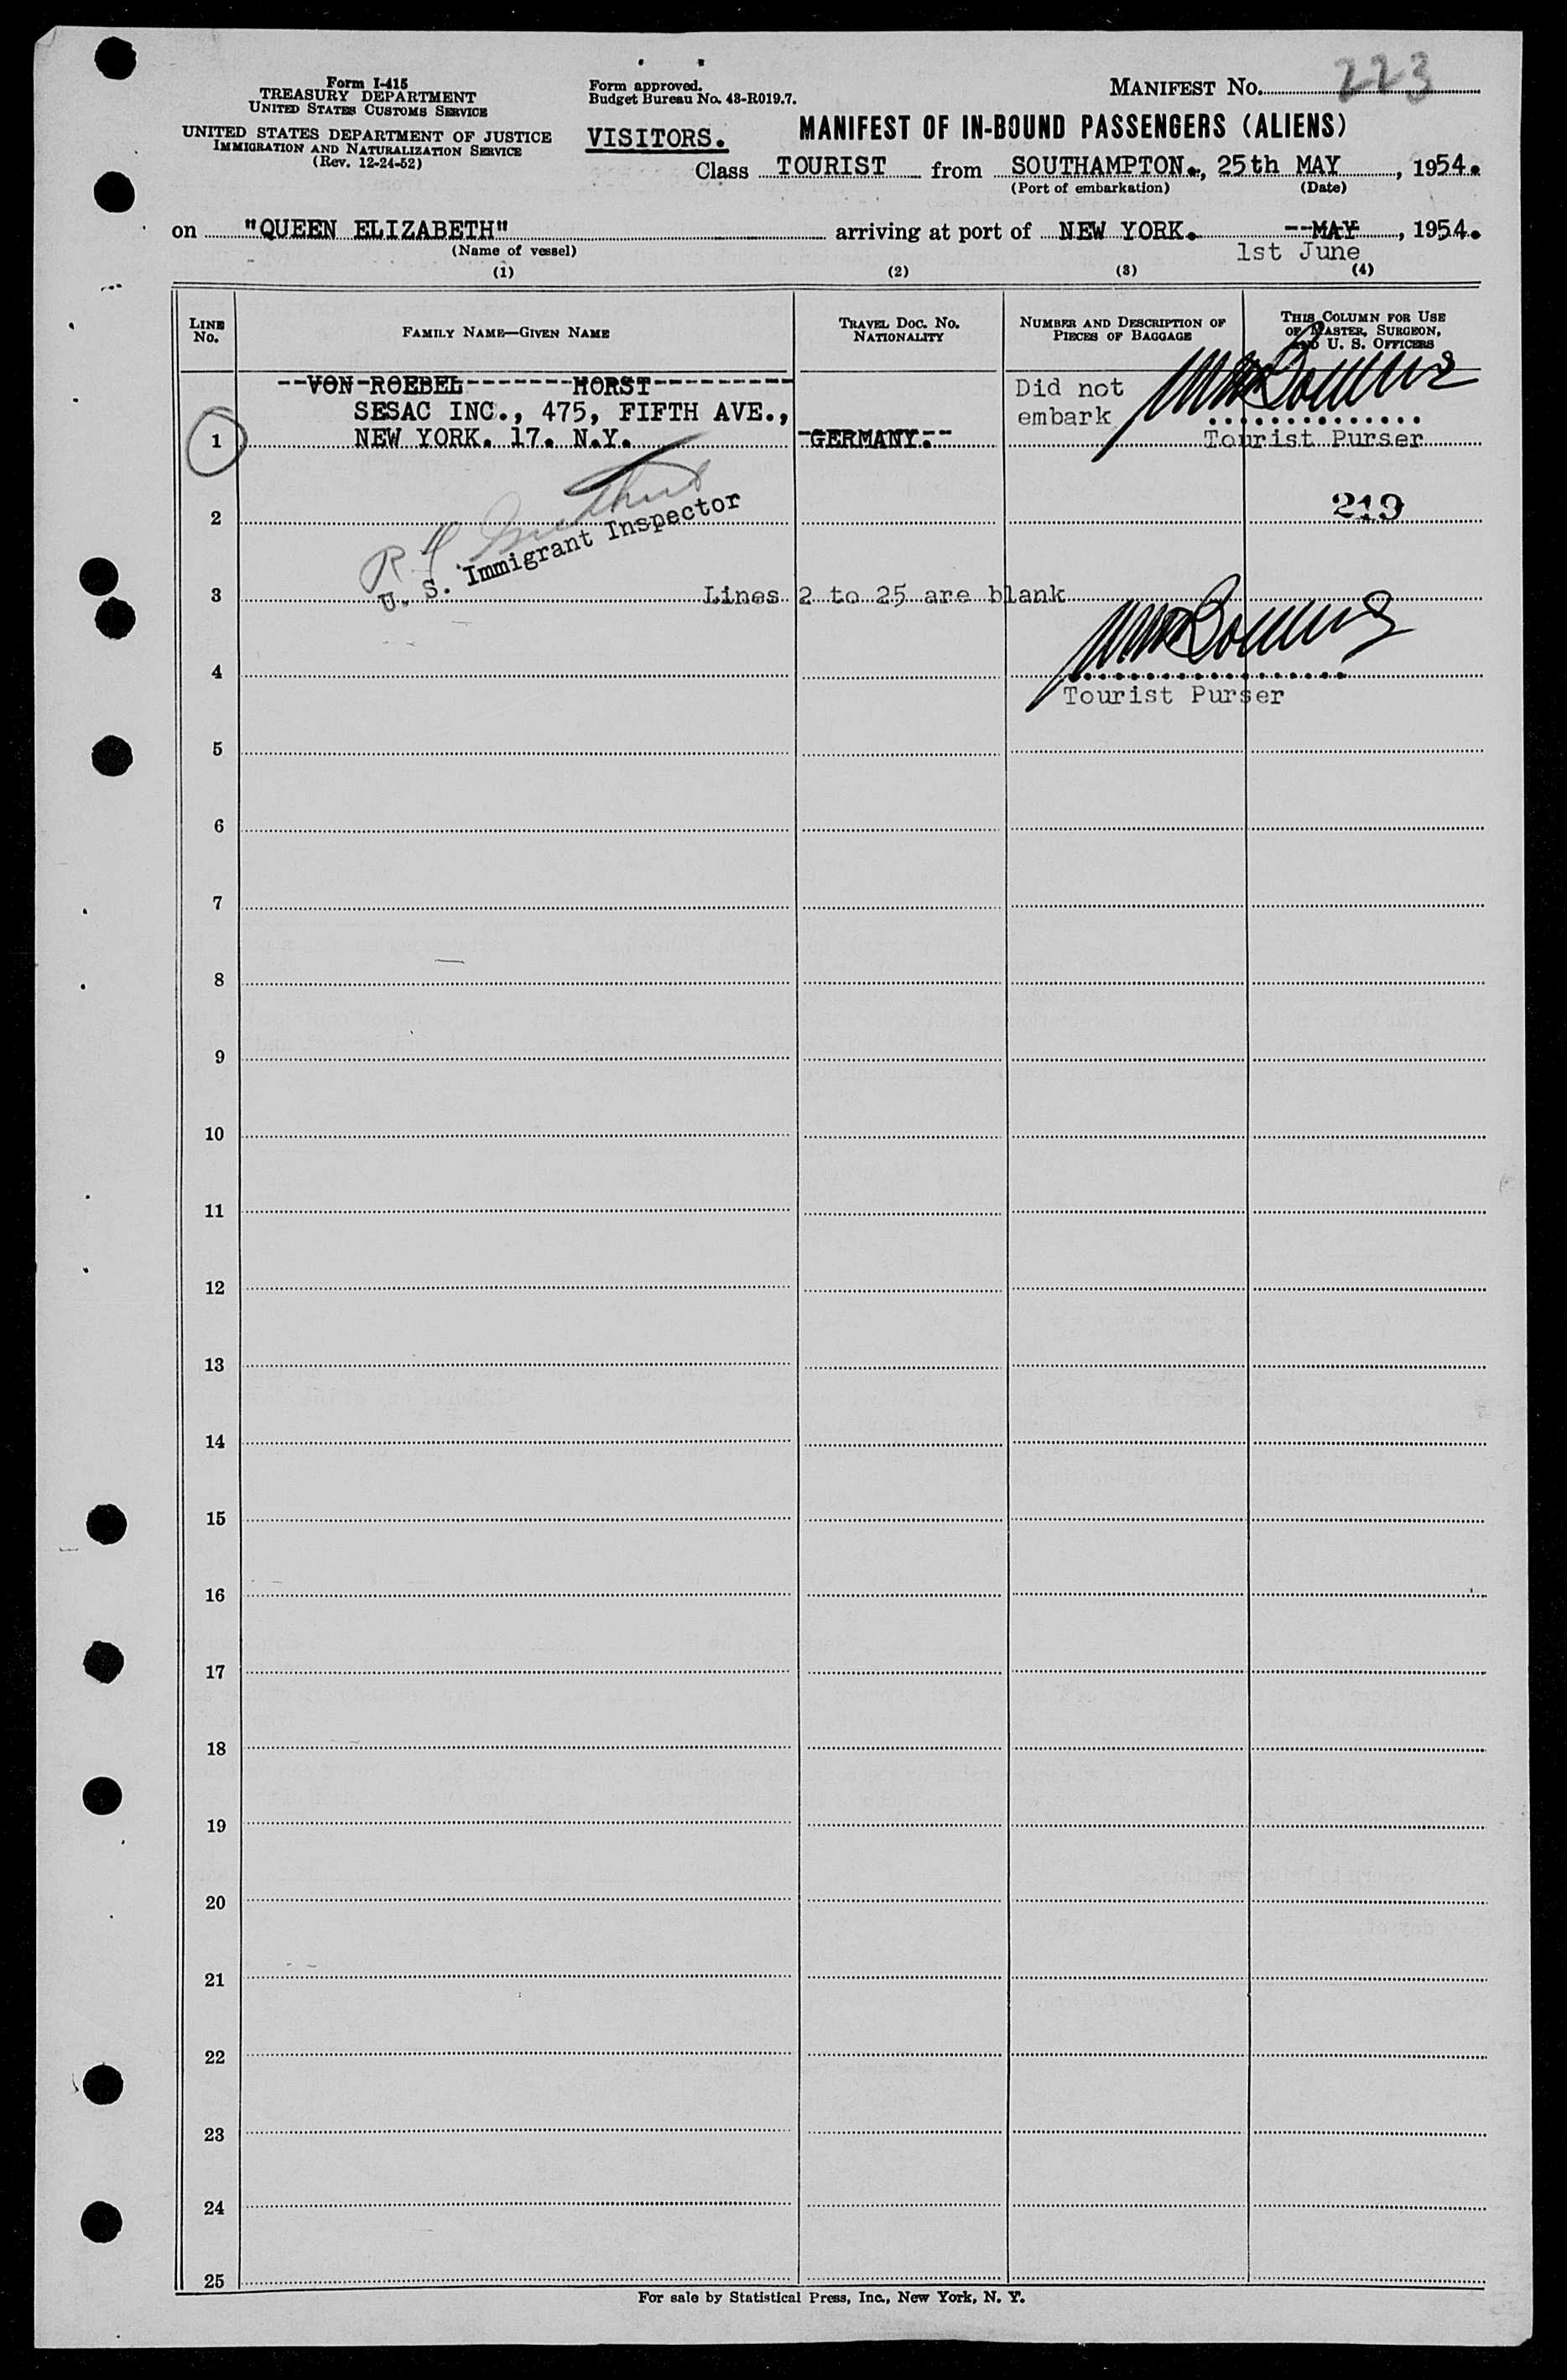 Form I-415
TREASURY DEPARTMENT
UNITED STATES CUSTOMS SERVICE
UNITED STATES DEPARTMENT OF JUSTICE
IMMIGRATION AND NATURALIZATION SERVICE
(Rev. 12-24-52)
Form approved.
Budget Bureau No. 43-R019.7.
VISITORS.
MANIFEST No. 223
MANIFEST OF IN-BOUND PASSENGERS (ALIENS)
Class TOURIST from SOUTHAMPTON., 25th MAY, 1954.
(Port of embarkation) (Date)
on "QUEEN ELIZABETH" arriving at port of NEW YORK. --MAY, 1954.
(Name of vessel) 1st June
(1) (2) (3) (4)
LINE No.
FAMILY NAME—GIVEN NAME
TRAVEL DOC. No. NATIONALITY
NUMBER AND DESCRIPTION OF PIECES OF BAGGAGE
THIS COLUMN FOR USE OF MASTER, SURGEON, AND U. S. OFFICERS
--VON-ROEBEL-------HORST---------
SESAC INC., 475, FIFTH AVE.,
1 NEW YORK. 17. N.Y. -GERMANY.--
Did not
embark
Tourist Purser
2 219
R H
U. S. Immigrant Inspector
3 Lines 2 to 25 are blank
4
Tourist Purser
5
6
7
8
9
10
11
12
13
14
15
16
17
18
19
20
21
22
23
24
25
For sale by Statistical Press, Inc., New York, N. Y.